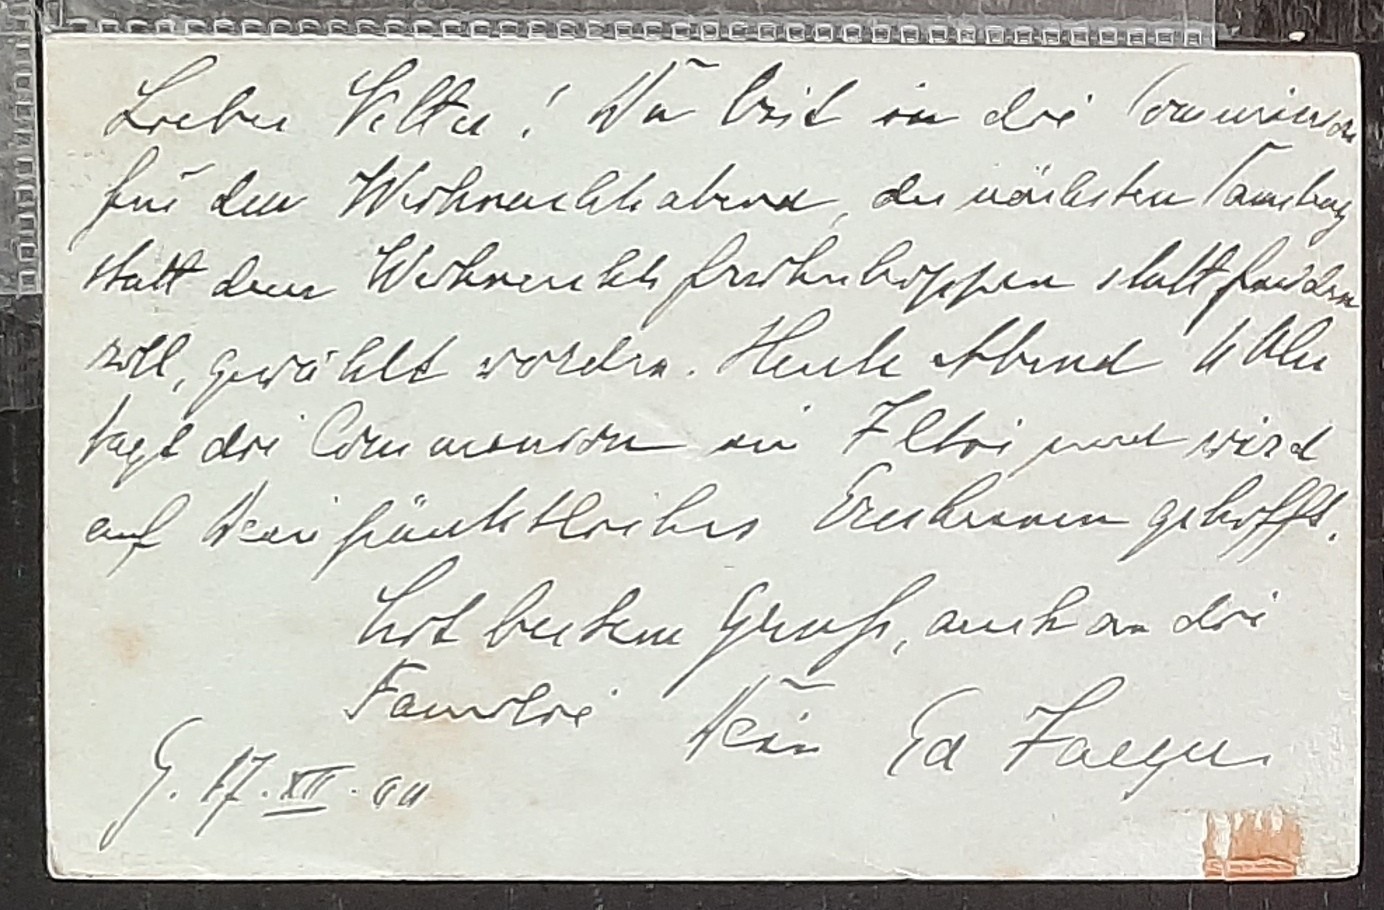 Lieber Vetter! Du bist in die Commission
für den Weihnachtsabend, der nächsten Samstag
statt dem Weihnachtsfrühschoppen stattfinden
soll, gewählt worden. Heute Abend Uhr
tagt die Commission im und wird
auf Dein pünktliches Erscheinen gehofft.
Mit bestem Gruß, auch an die
Familie Dein Ed Jaeger
G. 17. XII.